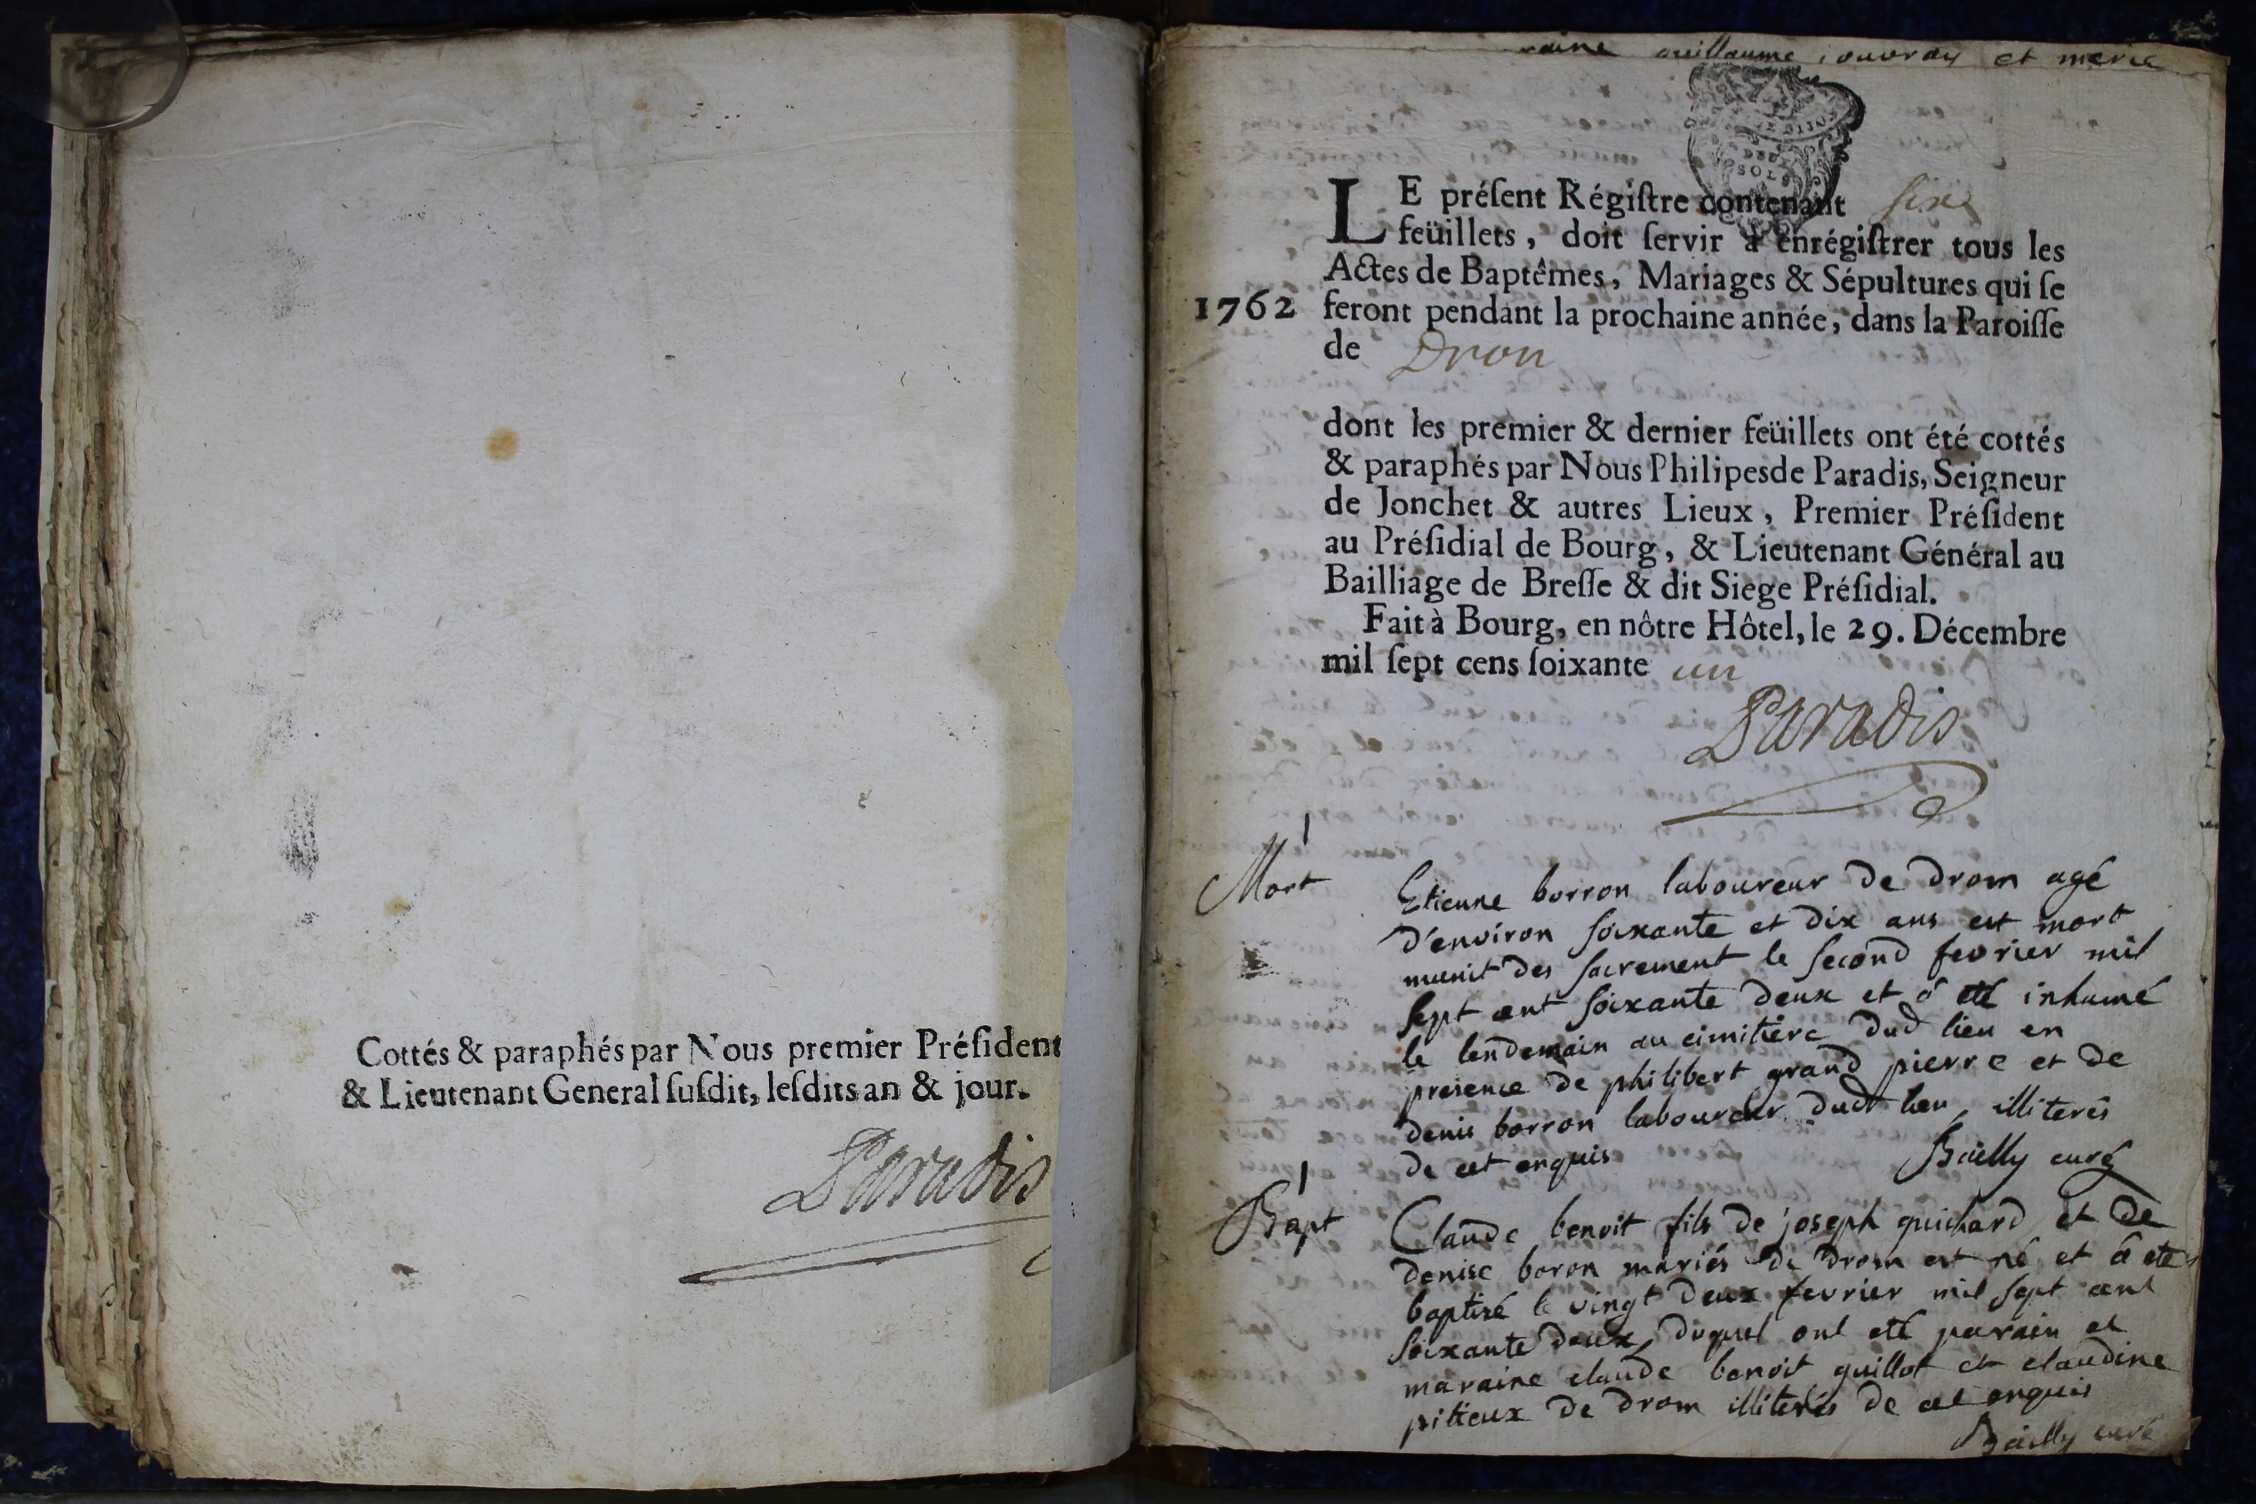 Cottés & paraphés par Nous premier Préſident
& Lieutenant General ſuſdit, leſdits an & jour.
Paradis
guillaume jouvray et merie
DEUX
SOLS
LE préſent Régiſtre contenant six
feüillets, doit ſervir à enrégiſtrer tous les
Actes de Baptêmes, Mariages & Sépultures qui ſe
1762 feront pendant la prochaine année, dans la Paroiſſe
de Dron
dont les premier & dernier feüillets ont été cottés
& paraphés par Nous Philipes de Paradis, Seigneur
de Jonchet & autres Lieux, Premier Préſident
au Préſidial de Bourg, & Lieutenant Général au
Bailliage de Breſſe & dit Siege Préſidial.
Fait à Bourg, en nôtre Hôtel, le 29. Décembre
mil ſept cens ſoixante un
Paradis
1
Mort
Etienne borron laboureur de drom agé
d'environ soixante et dix ans est mort
munit des sacrement le second fevrier mil
sept cent soixante deux et a eté inhumé
le lendemain au cimitière dud lieu en
presence de philibert grand pierre et de
denis borron laboureur dudt lieu illiterés
de cet enquis
Bailly curé
1
Bapt
Claude benoit fils de joseph guichard et de
denise boron mariés de drom est né et a eté
baptisé le vingt deux fevrier mil sept cent
soixante deux duquel ont eté parain et
maraine claude benoit guillot et claudine
pitieux de drom illiterés de cet enquis
Bailly curé